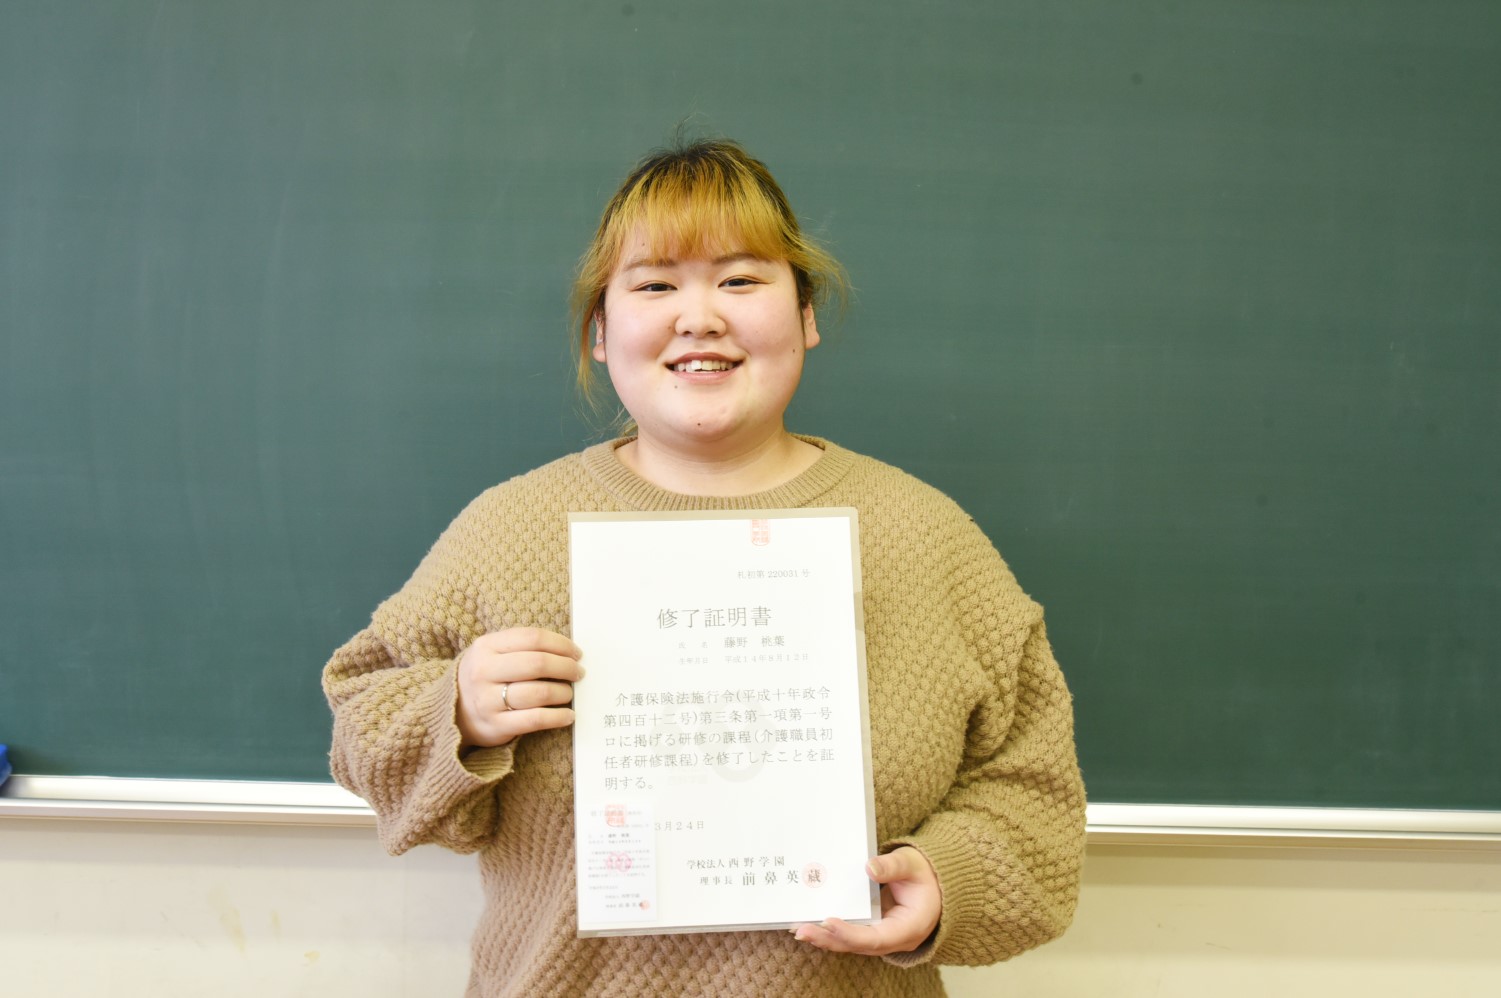 札初第220031号
修了証明書
氏 名 藤野 桃葉
生年月日 平成14年9月12日
介護保険法施行令(平成十年政令
第四百十二号)第三条第一項第一号
ロに掲げる研修の課程(介護職員初
任者研修課程)を修了したことを証
明する。
3月24日
学校法人 西野学園
理事長 前鼻英蔵